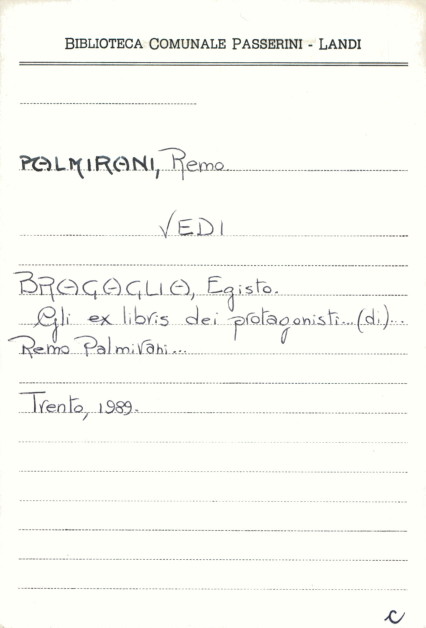 BIBLIOTECA COMUNALE PASSERINI - LANDI
PALMIRANI, Remo.
VEDI
BRAGAGLIA, Egisto.
Gli ex libris dei protagonisti...(di)...
Remo Palmirani...
Trento, 1989.
C